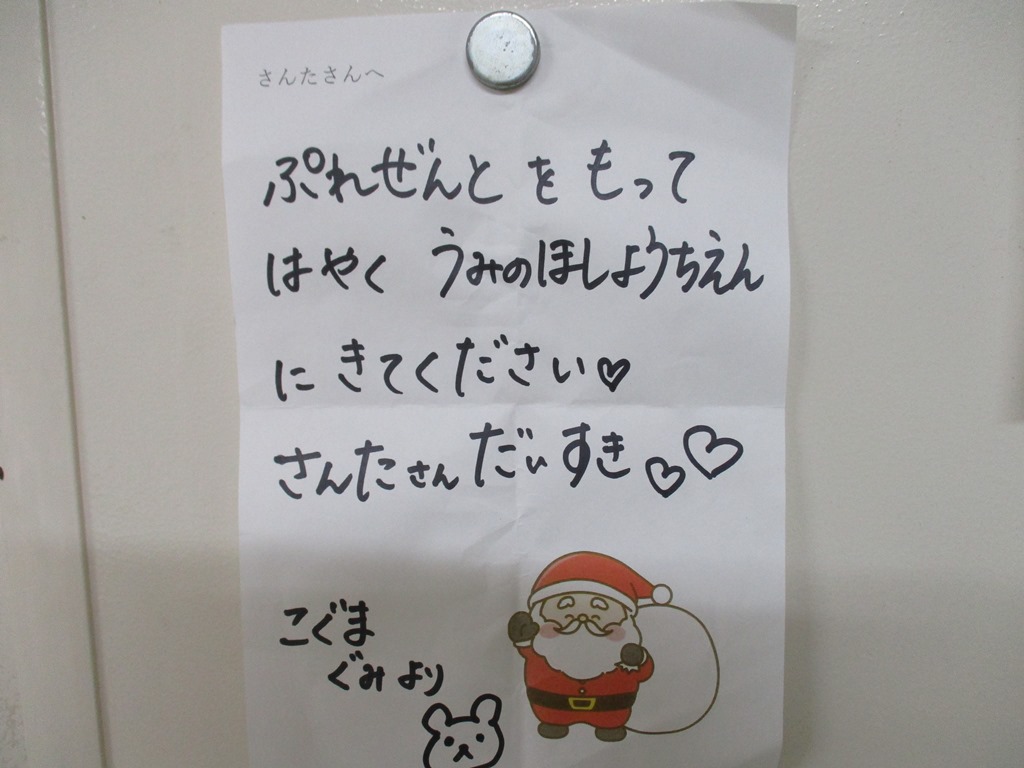 さんたさんへ
ぷれぜんと を もって
はやく うみのほしようちえん
に きてください♡
さんたさん だいすき♡♡
こぐま
ぐみ より